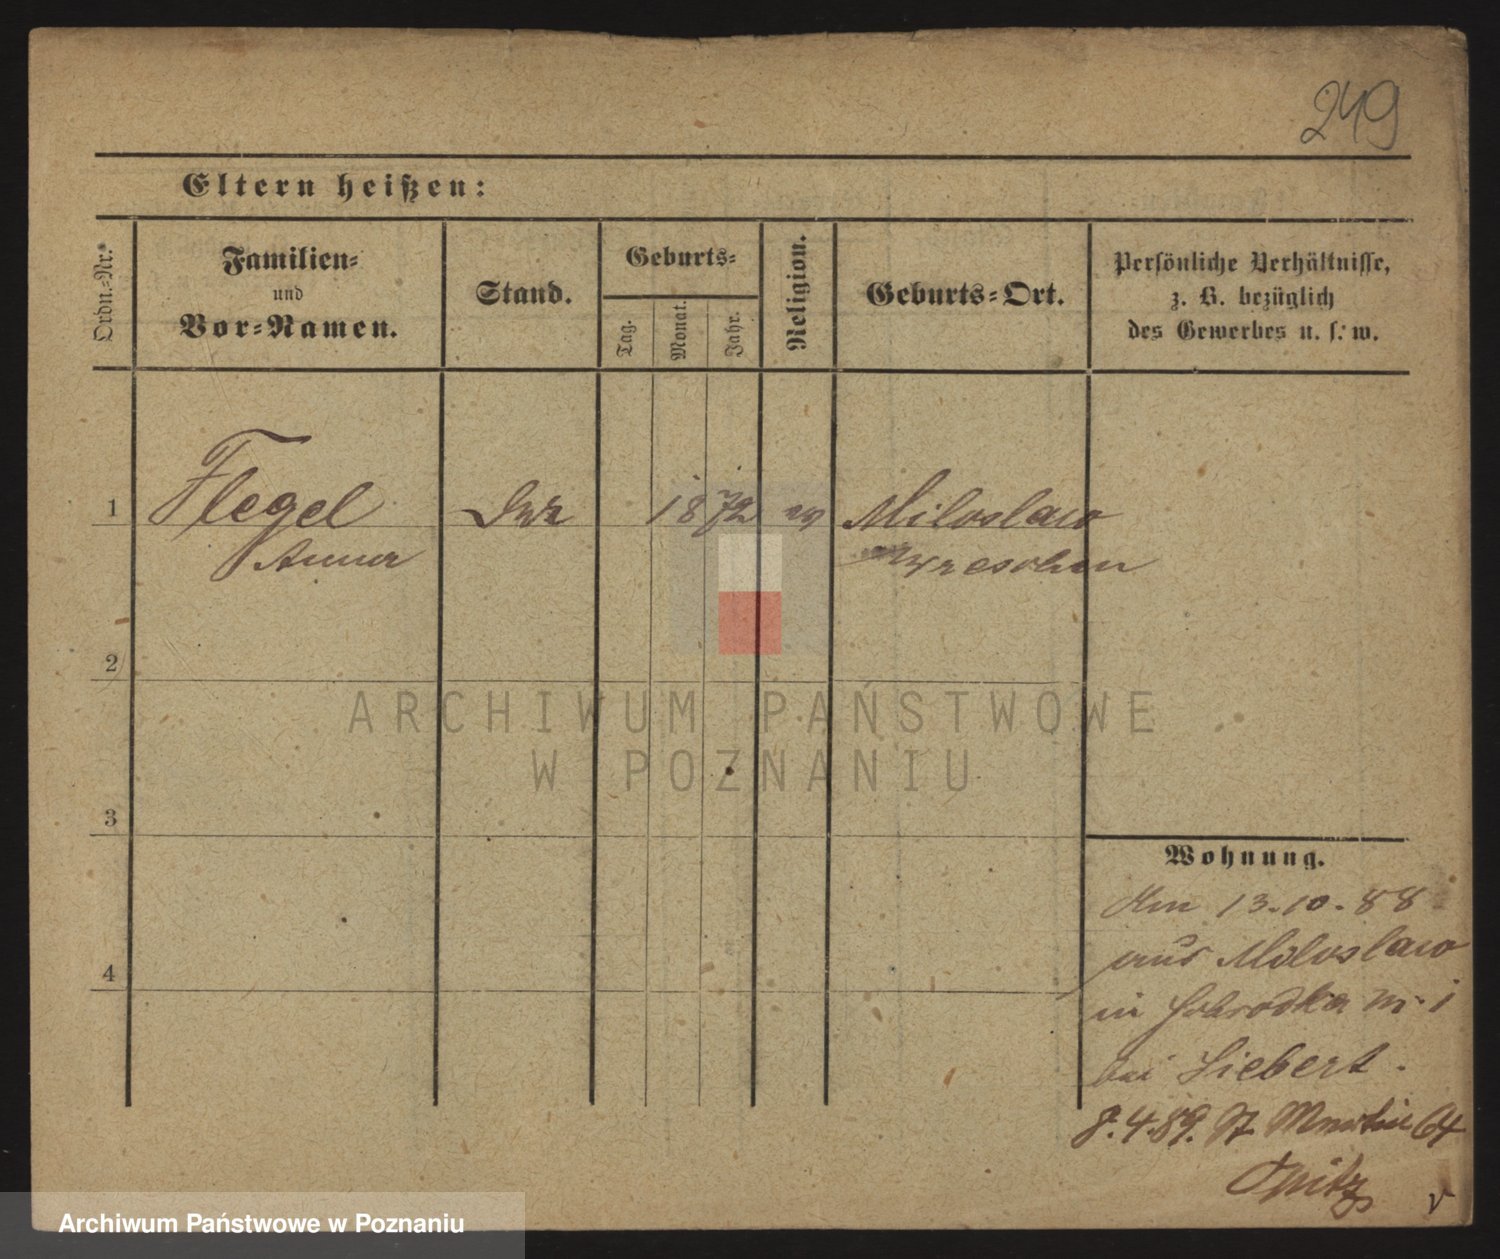 249
Eltern heißen:
Ordn.-Nr.
Familien-
und
Vor-Namen.
Stand.
Geburts-
Tag.
Monat.
Jahr.
Religion.
Geburts-Ort.
Persönliche Verhältnisse,
z. B. bezüglich
des Gewerbes u. s. w.
1
Flegel
Anna
1872
ev
Miloslaw
Wreschen
2
3
4
Wohnung.
Am 13.10.88
aus Miloslaw
in
bei Siebert.
8.4.89. St Martin 64
Opitz
ARCHIWUM PAŃSTWOWE
W POZNANIU
Archiwum Państwowe w Poznaniu